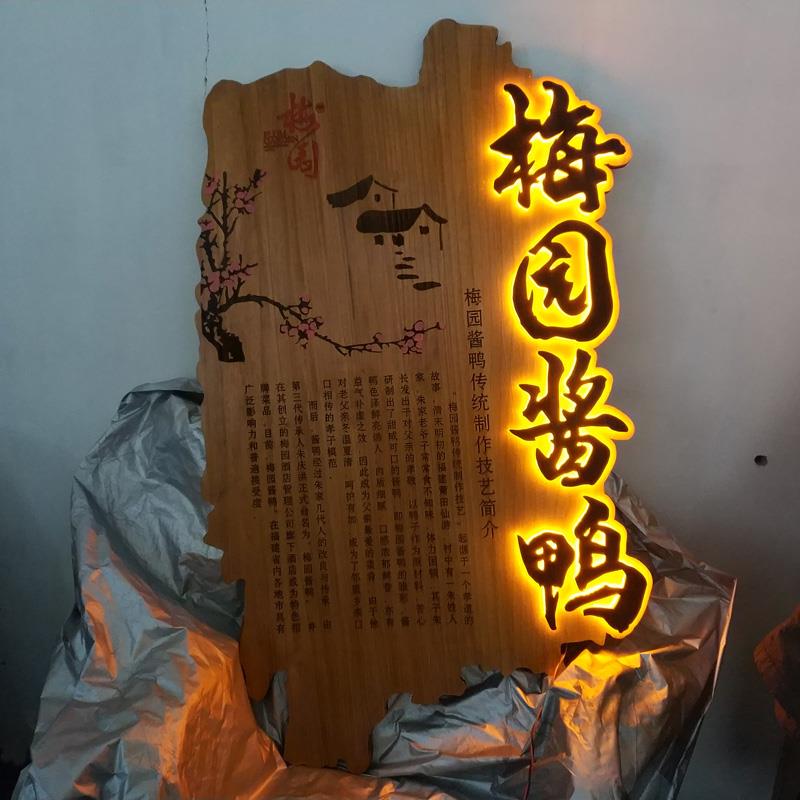 梅园酱鸭
梅园
梅园酱鸭传统制作技艺简介
“梅园酱鸭传统制作技艺”起源于一个孝道的
故事。清末明初的福建莆田仙游，村中有一朱姓人
家，朱家老爷子常常食不知味，体力困顿，其子朱
长发出于对父亲的孝敬，以鸭子作为原材料，苦心
研制出了甜咸可口的酱鸭，即梅园酱鸭的雏形。酱
鸭色泽鲜亮诱人，肉质细腻，口感浓郁鲜香，亦有
益气补虚之效，因此成为父亲最爱的菜肴。由于他
对老父亲冬温夏凊，呵护有加，成为了邻里乡亲口
口相传的孝子模范。
而后，酱鸭经过朱家几代人的改良与传承，由
第三代传承人朱庆洪正式命名为“梅园酱鸭”，并
在其创立的梅园酒店管理公司旗下酒店成为特色招
牌菜品。目前，梅园酱鸭，在福建省内各地市具有
广泛影响力和普遍接受度。